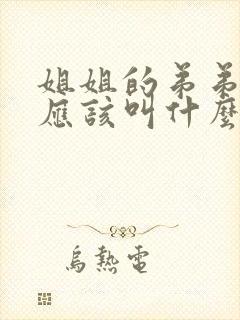 姐姐的弟弟
應該叫什麼
烏熱電